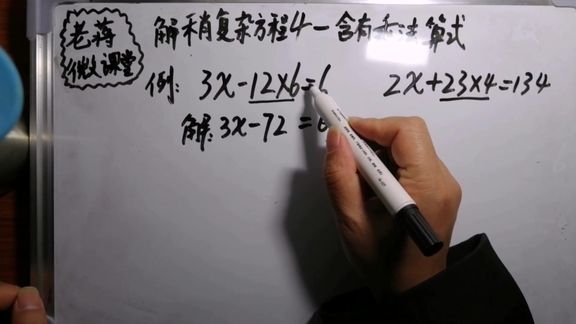 老蒋
微课堂
解稍复杂方程4-含有乘法算式
例: 3x-12×6=6 2x+23×4=134
解: 3x-72=6